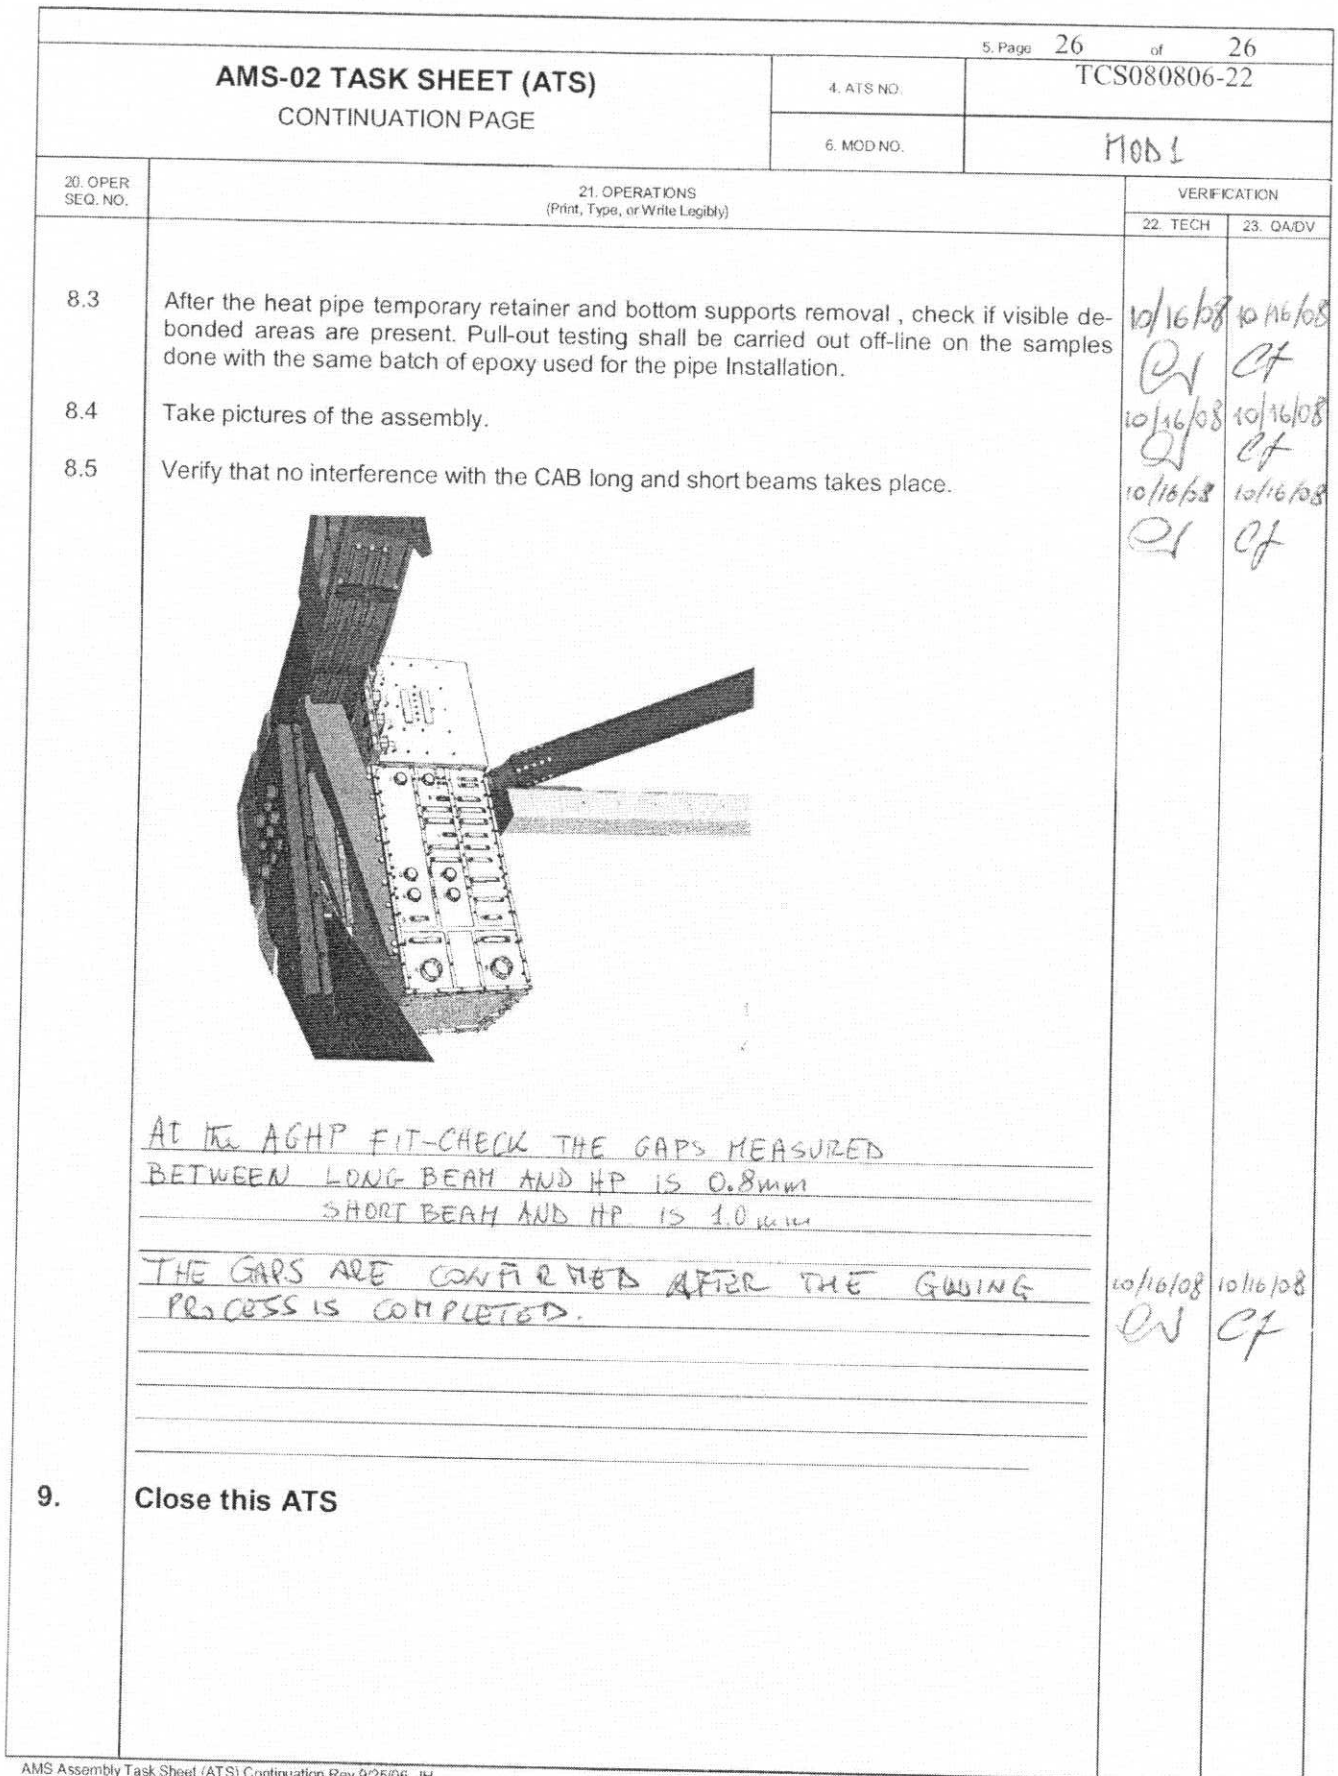 5. Page 26 of 26
AMS-02 TASK SHEET (ATS)
CONTINUATION PAGE
4. ATS NO.
TCS080806-22
6. MOD NO.
MOD1
20. OPER
SEQ. NO.
21. OPERATIONS
(Print, Type, or Write Legibly)
VERIFICATION
22. TECH
23. QA/DV
8.3
After the heat pipe temporary retainer and bottom supports removal , check if visible de-
bonded areas are present. Pull-out testing shall be carried out off-line on the samples
done with the same batch of epoxy used for the pipe Installation.
10/16/08 10/16/08
Cf
8.4
Take pictures of the assembly.
10/16/08 10/16/08
Cf
8.5
Verify that no interference with the CAB long and short beams takes place.
10/16/08 10/16/08
Cf
At the AGHP FIT-CHECK THE GAPS MEASURED
BETWEEN LONG BEAM AND HP is 0.8mm
SHORT BEAM AND HP. IS 1.0 mm
THE GAPS ARE CONFIRMED AFTER THE GLUING
PROCESS IS COMPLETED.
10/16/08 10/16/08
Cf
9. Close this ATS
AMS Assembly Task Sheet (ATS) Continuation Rev 9/25/06 JH